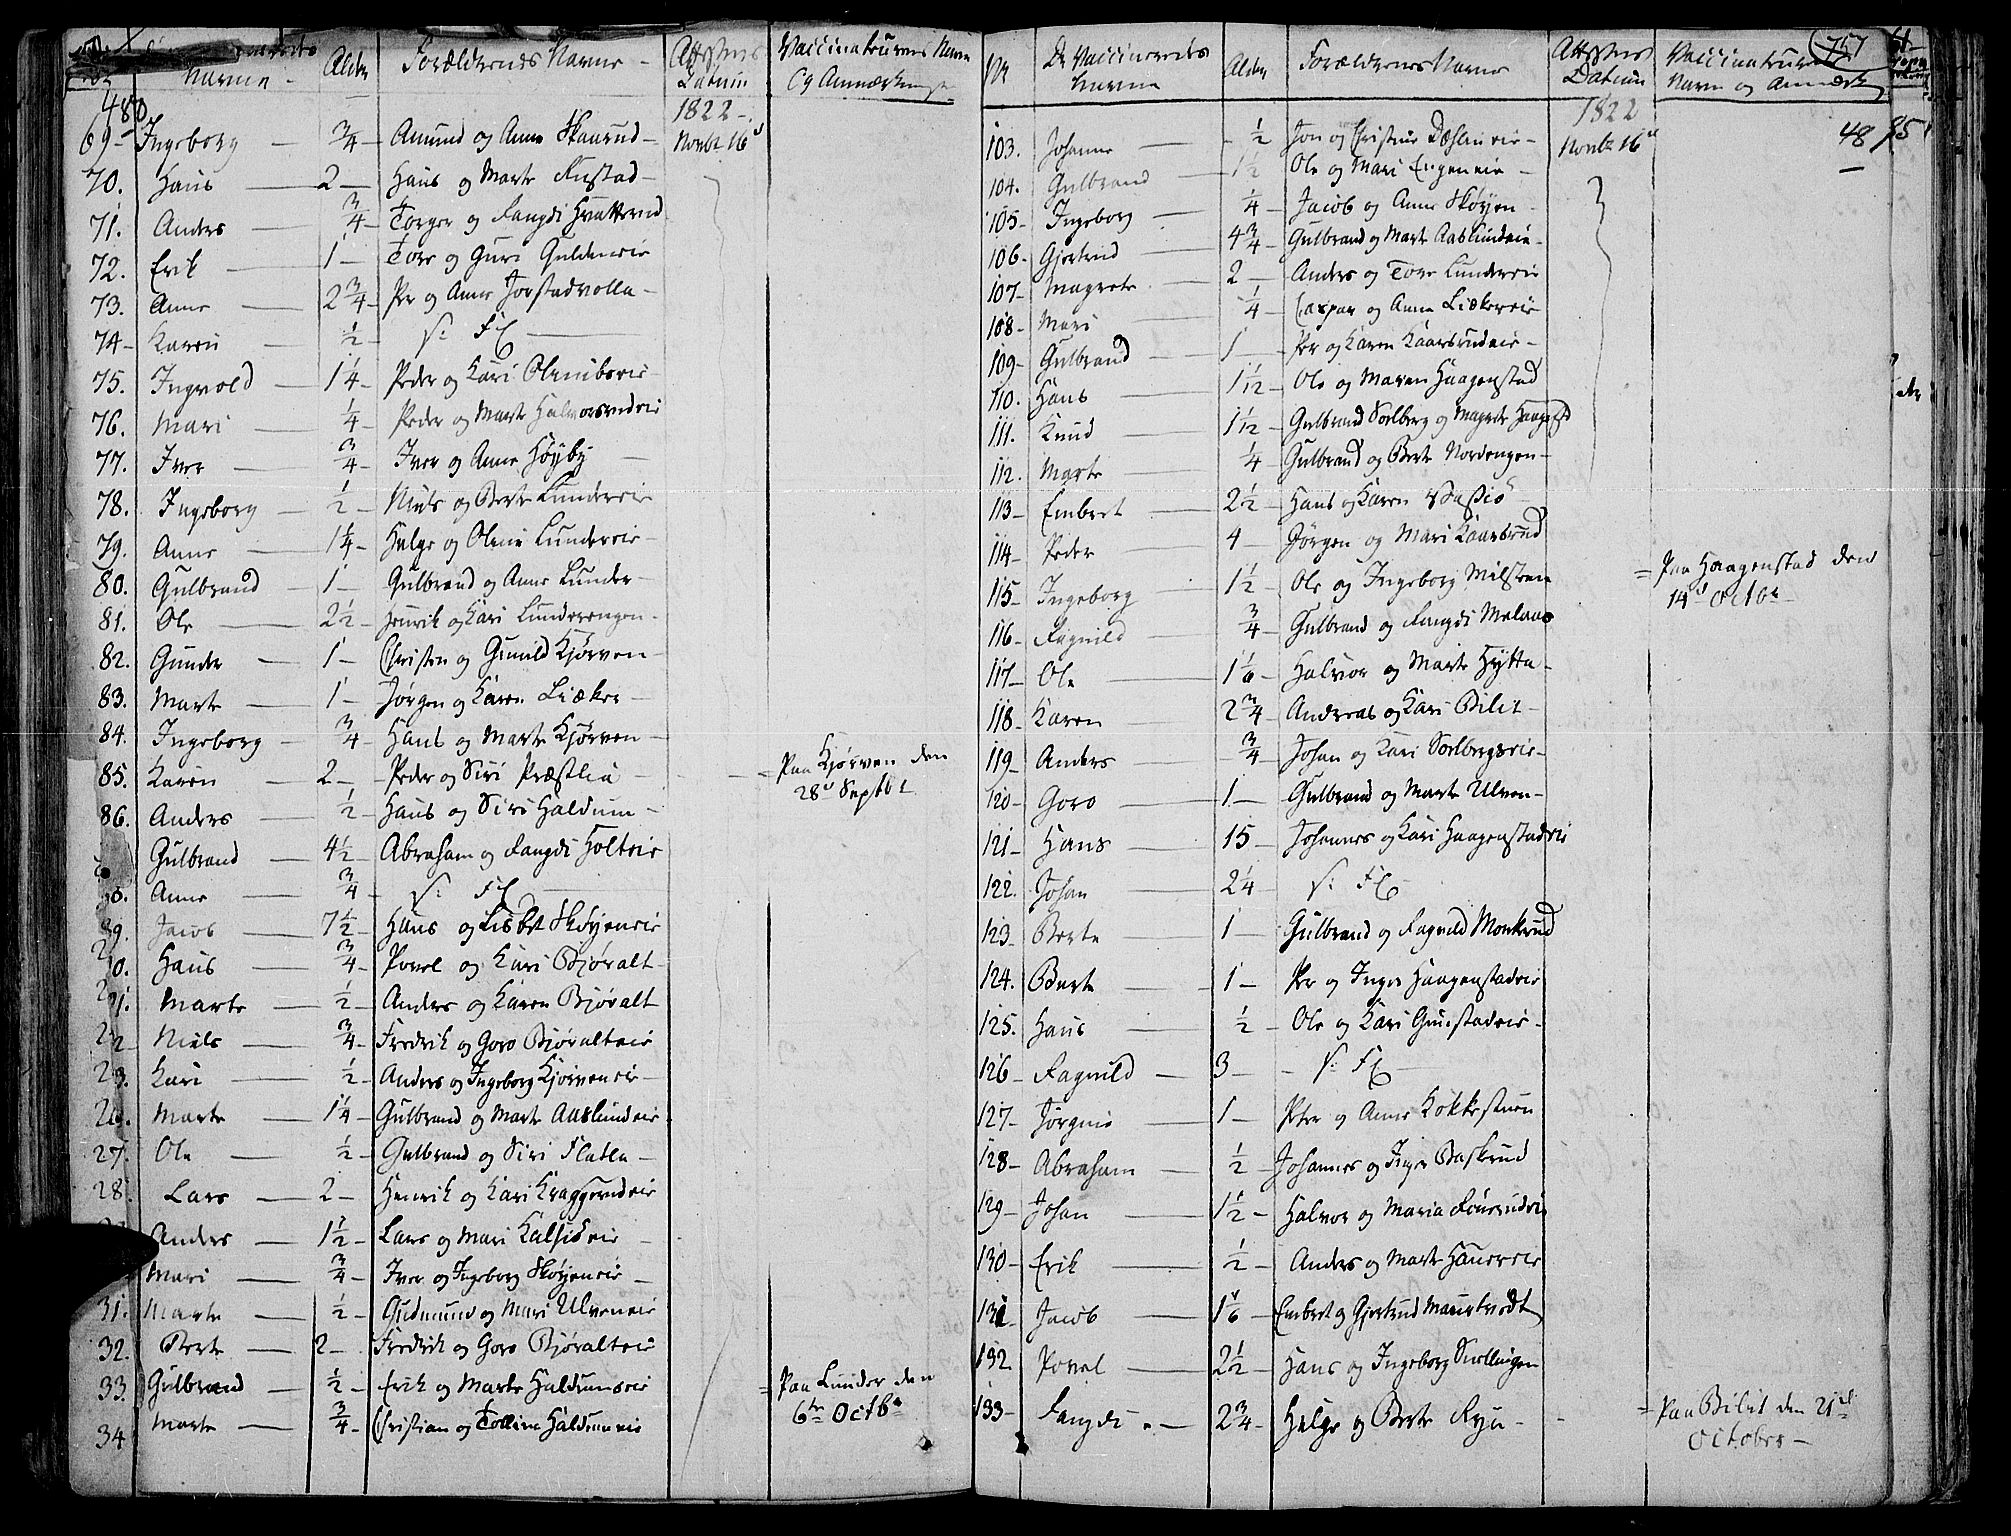 Navne Alder Forældrenes Navne Attestens Datum Vaccinateurens Navn Og Anmærkninger
480
1822
69 Ingeborg 3/4 Amund og Anne Skaarud Novbr 16d
70. Hans 2 Hans og Marte Rustad
71. Anders 3/4 Torger og Rangdi
72. Erik 1 Tore og Guri Guldeneie
73. Anne 2 3/4 Per og Anne Jorstadvolla
74 Karen 1/2 S: F
75. Ingvold 1 1/4 Peder og Kari
76. Mari 1/4 Peder og Marte Halvorsrudeie
77. Iver 3/4 Iver og Anne Høyby
78. Ingeborg 1/2 Niels og Berte Lundereie
79. Anne 1 1/4 Helge og Olene Lundereie
80. Gulbrand 1 Gulbrand og Anne Lunder
81. Ole 2 1/2 Henrik og Kari Lunderengen
82. Gunder 1 Christen og Gunild Kjørven
83. Marte 1 Jørgen og Karen Lieker
84. Ingeborg 3/4 Hans og Marte Kjørven
85. Karen 2 Peder og Siri Præstlia = Paa Kjørven den
28d Septbr
86. Anders 1/2 Hans og Siri Haldum
Gulbrand 4 1/2 Abraham og Rangdi Holteie
8. Anne 3/4 S: F
89. Jacob 7 1/2 Hans og Lisbet Skøyeneie
20. Hans 3/4 Povel og Kari Bjøralt
21. Marte 1/2 Anders og Karen Bjøralt
22 Niels 3/4 Fredrik og Goro Bjøralteie
23. Kari 1/2 Anders og Ingeborg Kjørveneie
26. Marte 1 1/4 Gulbrand og Marte Aaslundeie
27. Ole 1/2 Gulbrand og Siri Flatla
28. Lars 2 Henrik og Kari Kraggerudeie
Anders 1 1/2 Lars og Mari
Mari 3/4 Iver og Ingeborg Skøyeneie
31. Marte 1/2 Gudmund og Mari Ulveneie
32. Berte 2 Fredrik og Goro Bjøralteie
33. Gulbrand 1/2 Erik og Marte Haldumseie = Paa Lunder den
6te Octbr
34 Marte 3/4 Christian og Tolline Haldumeie
757
Nr De Vaccineredes Navne Alder Forældrenes Navne Attestens Datum Vaccinateurens Navn og Anmærk
1822
103. Johanne 1/2 Jon og Christine Novbr 16d 48
104. Gulbrand 1 1/2 Ole og Mari Engeneie
105 Ingeborg 1/4 Jacob og Anne Skøyen
106 Gjertrud 4 3/4 Gulbrand og Marte Aaslundeie
107 Magrete 2 Anders og Tore Lundereie
108 Mari 1/4 Caspar og Anne Liekereie
109 Gulbrand 1 Per og Karen Kaarsrudeie
110. Hans 1 1/12 Ole og Maren Haagenstad
111. Knud 1 1/12 Gulbrand Solberg og Magrete Haagstd
112. Marte 1/4 Gulbrand og Berte Nordengen
113 Embret 2 1/2 Hans og Karen
114 Peder 4 Jørgen og Mari Kaarsrud
115 Ingeborg 1 1/2 Ole og Ingeborg = Paa Haagenstad den
14d Octbr
116 Ragnild 3/4 Gulbrand og Rangdi
117 Ole 1 1/6 Halvor og Marte Hytta
118 Karen 2 3/4 Andreas og Kari Bilit
119 Anders 3/4 Johan og Kari Solbergseie
120 Goro 1 Gulbrand og Marte Ulven
121 Hans 15 Johannes og Kari Haagenstadeie
122. Johan 2 1/4 S: F
123 Berte 1 Gulbrand og Ragnild Monkrud
124. Berte 1 Per og Inger Haagenstadeie
125. Hans 1/2 Ole og Kari
126 Ragnild 3 S: F
127 Jørgine 1 Peter og Anne Kokkestuen
128 Abraham 1/2 Johannes og Inger Baskrud
129 Johan 1 1/2 Halvor og Maria
130 Erik 1/2 Anders og Marte
131 Jacob 1 1/6 Embret og Gjertrud
132. Povel 2 1/2 Hans og Ingeborg
133 Rangdi 2 3/4 Helge og Berte = Paa Bilit den 21d
October